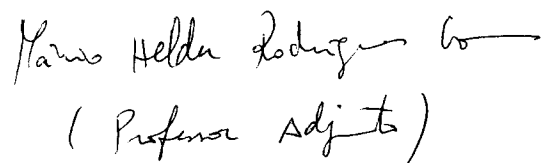 Mário Helder Rodrigues
(Professor Adjunto)